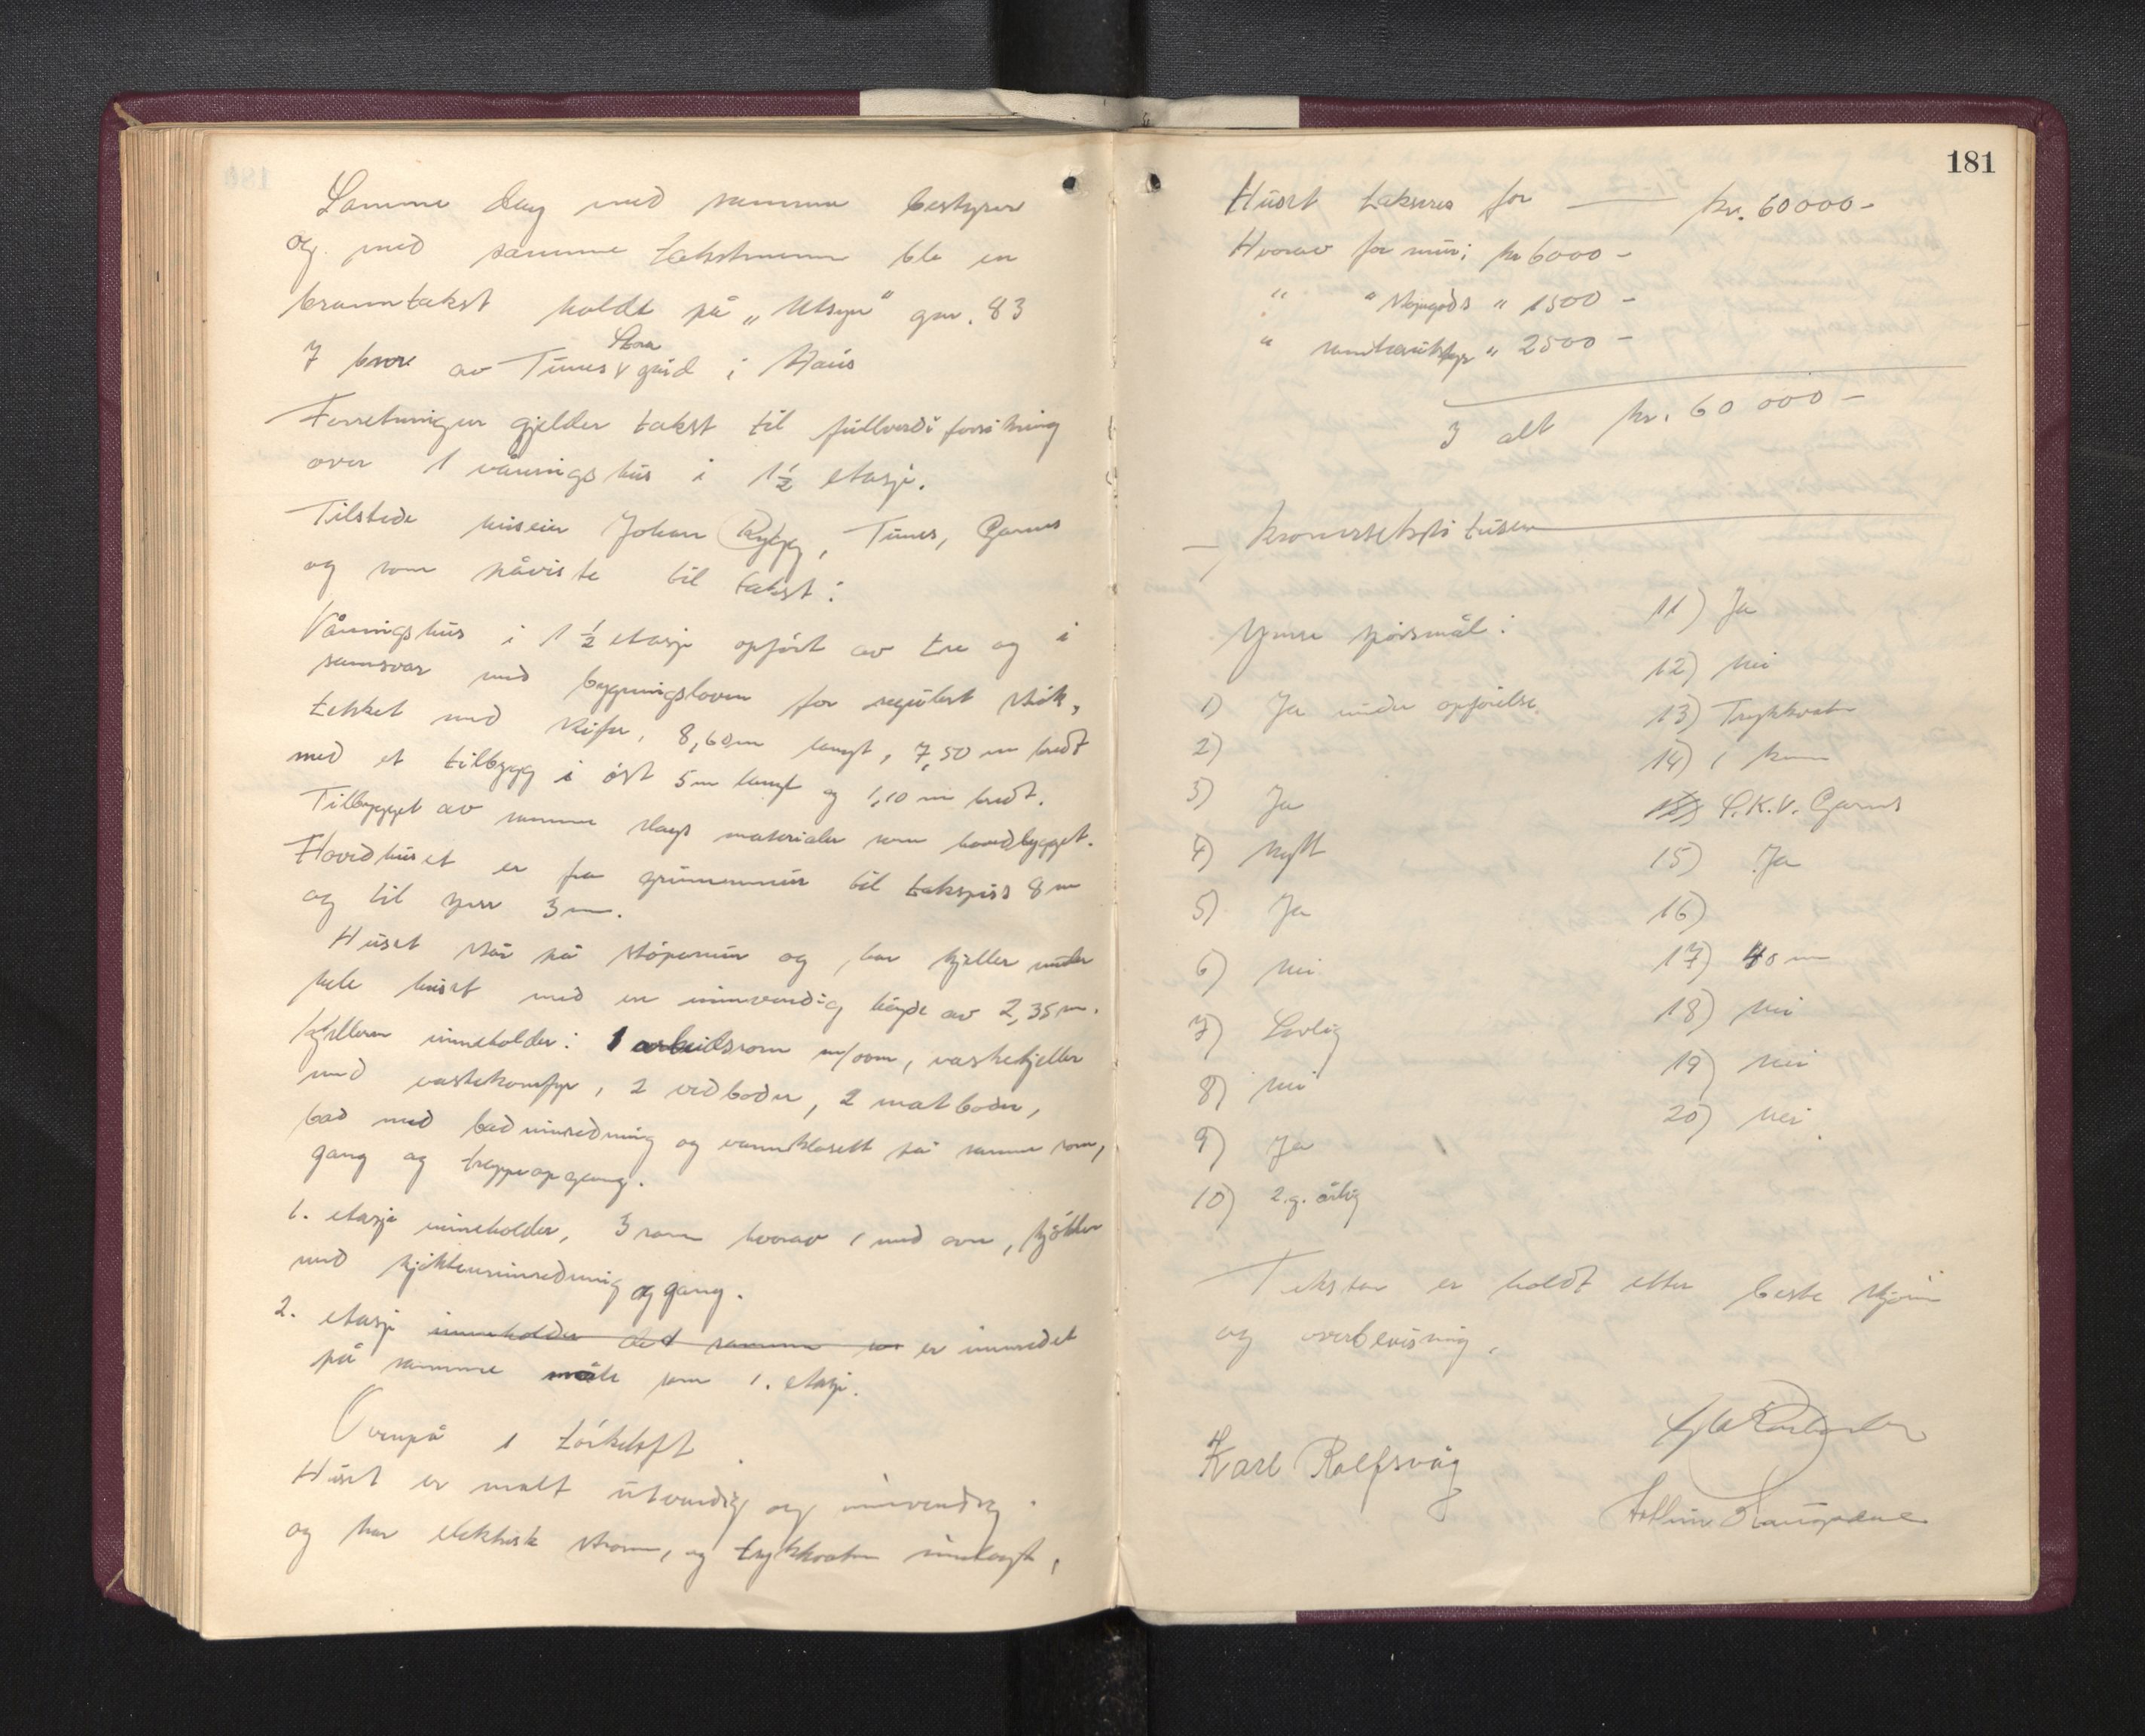 Samme dag med samme bestyrer
og med samme takstmenn ble en
branntakst holdt på „Utsyn" gnr. 83
7 bnr av Tunes Store gård i Haus
Forretningen gjelder takst til fullverdi forsikring
over 1 våningshus i 1½ etasje.
Tilstede huseier Johan Rygg, Tunes, Garnes
og som påviste til takst:
Våningshus i 1½ etasje opført av tre og i
samsvar med bygningsloven for regulert strök,
tekket med skifer, 8,60m langt, 7,50 m bredt
med et tilbygg i öst 5m langt og 1,10 m bredt.
Tilbygget av samme slags materialer som hovedbygget.
Hovedhuset er fra grunnmur til takspiss 8 m
og til gesims 3 m.
Huset står på stöpemur og har kjeller under
hele huset med en innvendig höyde av 2,35 m.
Kjelleren inneholder: 1 arbeidsrom m/ovn, vaskekjeller
med vaskekomfyr, 2 vedboder, 2 matboder,
bad med badinnredning og vannklosett på samme rom,
gang og trappeopgang.
1. etasje inneholder, 3 rom hvorav 1 med ovn, kjökken
med kjökkeninnredning og gang.
2. etasje inneholder det samme som er innredet
på samme måte som 1. etasje.
Ovenpå 1 törkeloft
Huset er malt utvendig og innvendig
og har elektrisk ström, og trykkvatn innlagt,
181
Huset takseres for kr. 60000-
Hvorav for mur: kr 6000 -
" " steingods " 1500 -
" sanitærutstyr " 2500 -
I alt kr. 60 000 -
kronersekstitusen
Ymse spörsmål:
1) Ja under opförelse.
2)
3) Ja
4) Nytt
5) Ja
6) Nei
7) Lovlig
8) Nei
9) Ja
10) 2.g. årlig
11) Ja
12) Nei
13) Trykkvatn
14) 1 km
15) S.K.V. Garnes
15) Ja
16)
17) 40 m
18) Nei
19) Nei
20) Nei
Taksten er holdt etter beste skjönn
og overbevisning.
Karl Rolfsvåg